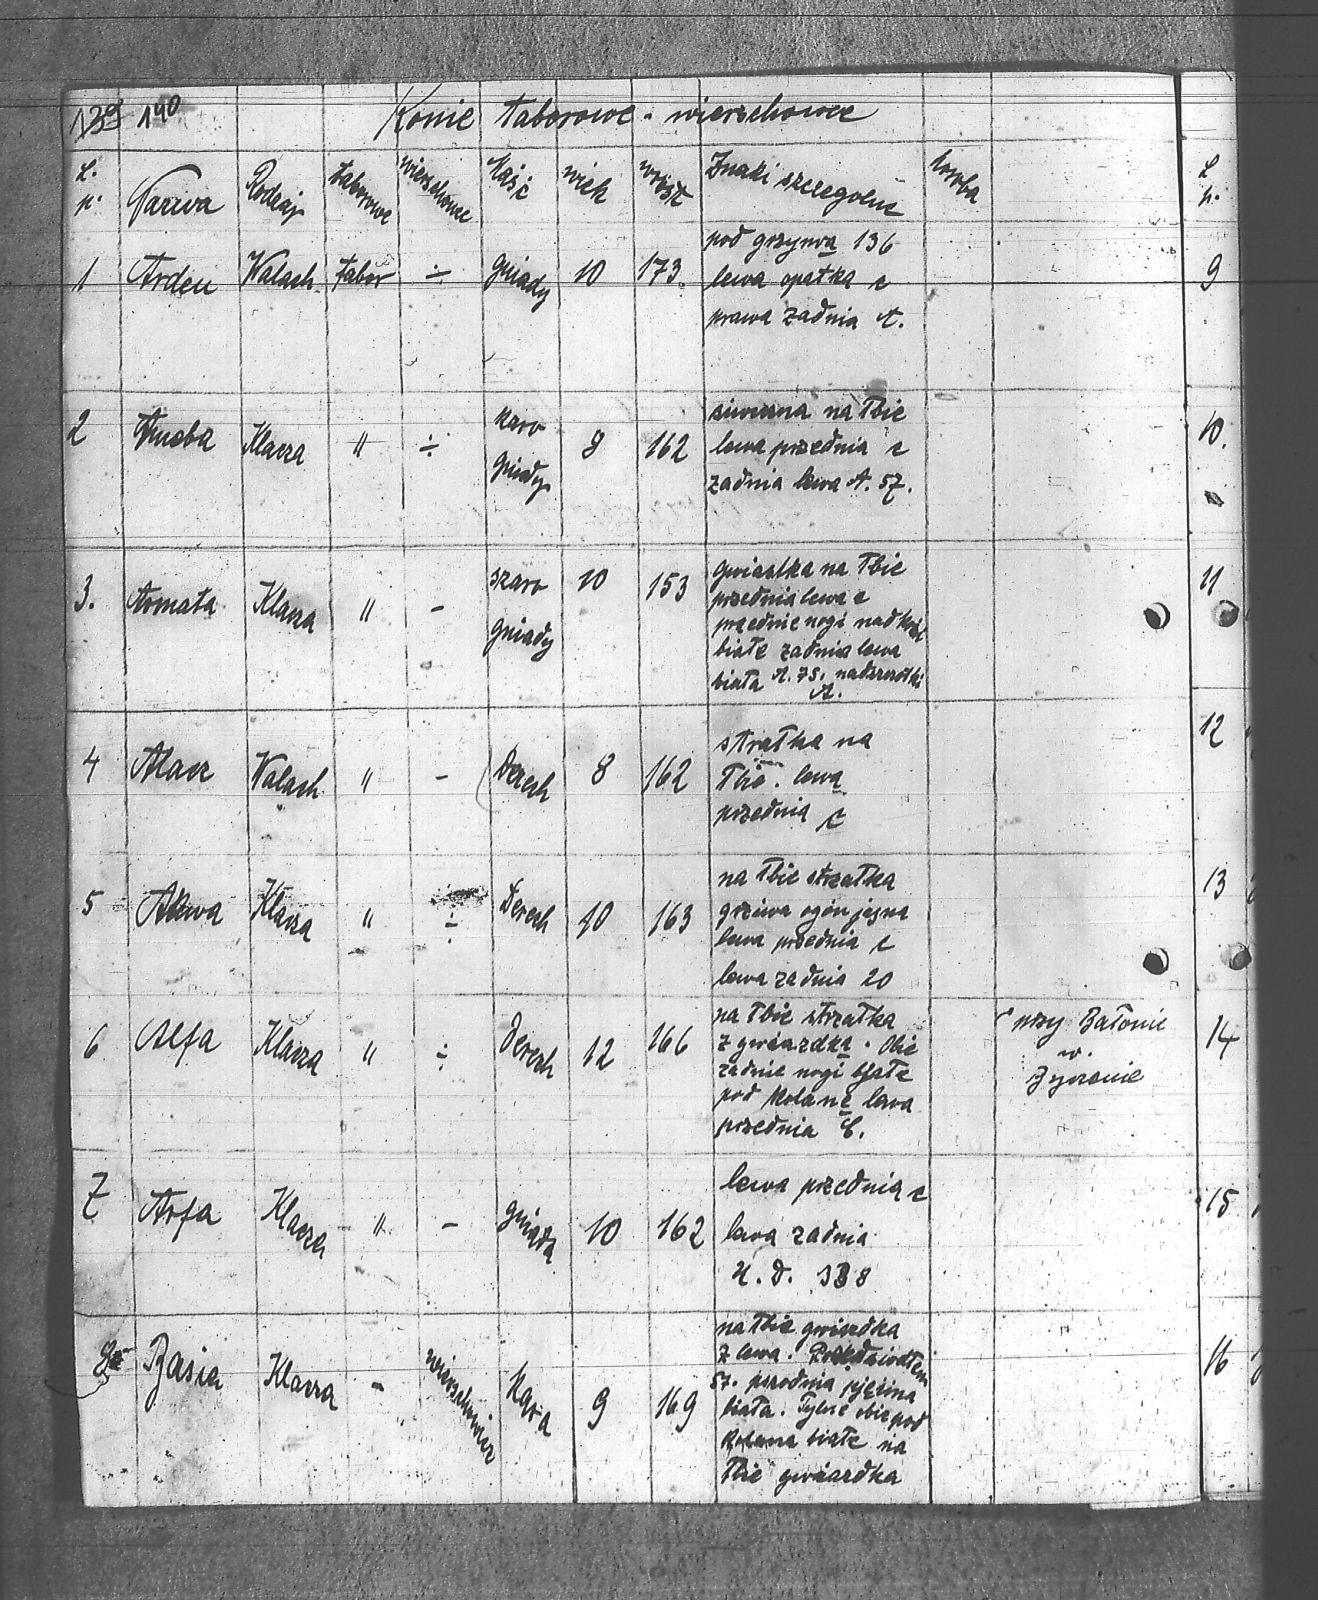 139 140
Konie taborowe - wierzchowe
L. p. Nazwa Rodzaj taborowe wierzchowe Maść wiek wzrost Znaki szczególne
1 Arden Wałach tabor ÷ gniady 10 173.
pod grzywą 136
lewa opatka c
prawa zadnia A.
2 Klacza " ÷ karo gniady 8 162
na łbie
lewa przednia c
zadnia lewa A. 57.
3. Armata Klacza " - szaro gniady 10 153
gwiazdka na łbie
przednia lewa c
przednie nogi nad
białe zadnia lewa
biała A. 75.
A.
4 Wałach " - Deresh 8 162
strałka na
łbie. lewa
przednia c
5 Klacza " ÷ Deresh 10 163
na łbie strzałka
grziwa ogon jasna
lewa przednia c
lewa zadnia 20
6 Alfa Klacza " ÷ Deresh 12 166
na łbie strzałka
z gwiazdką. Obie
zadnie nogi białe
pod kolane lewa
przednia C.
przy
w.
7 Arfa Klacza " - gniada 10 162
lewa przednia c
lewa zadnia
8 Basia Klacza - Kara 9 169
na łbie gwiazdka
z lewa.
57.
biała. Tylne obie pod
kolana białe na
łbie gwiazdka
L p.
9
10.
11
12
13
14
15
16